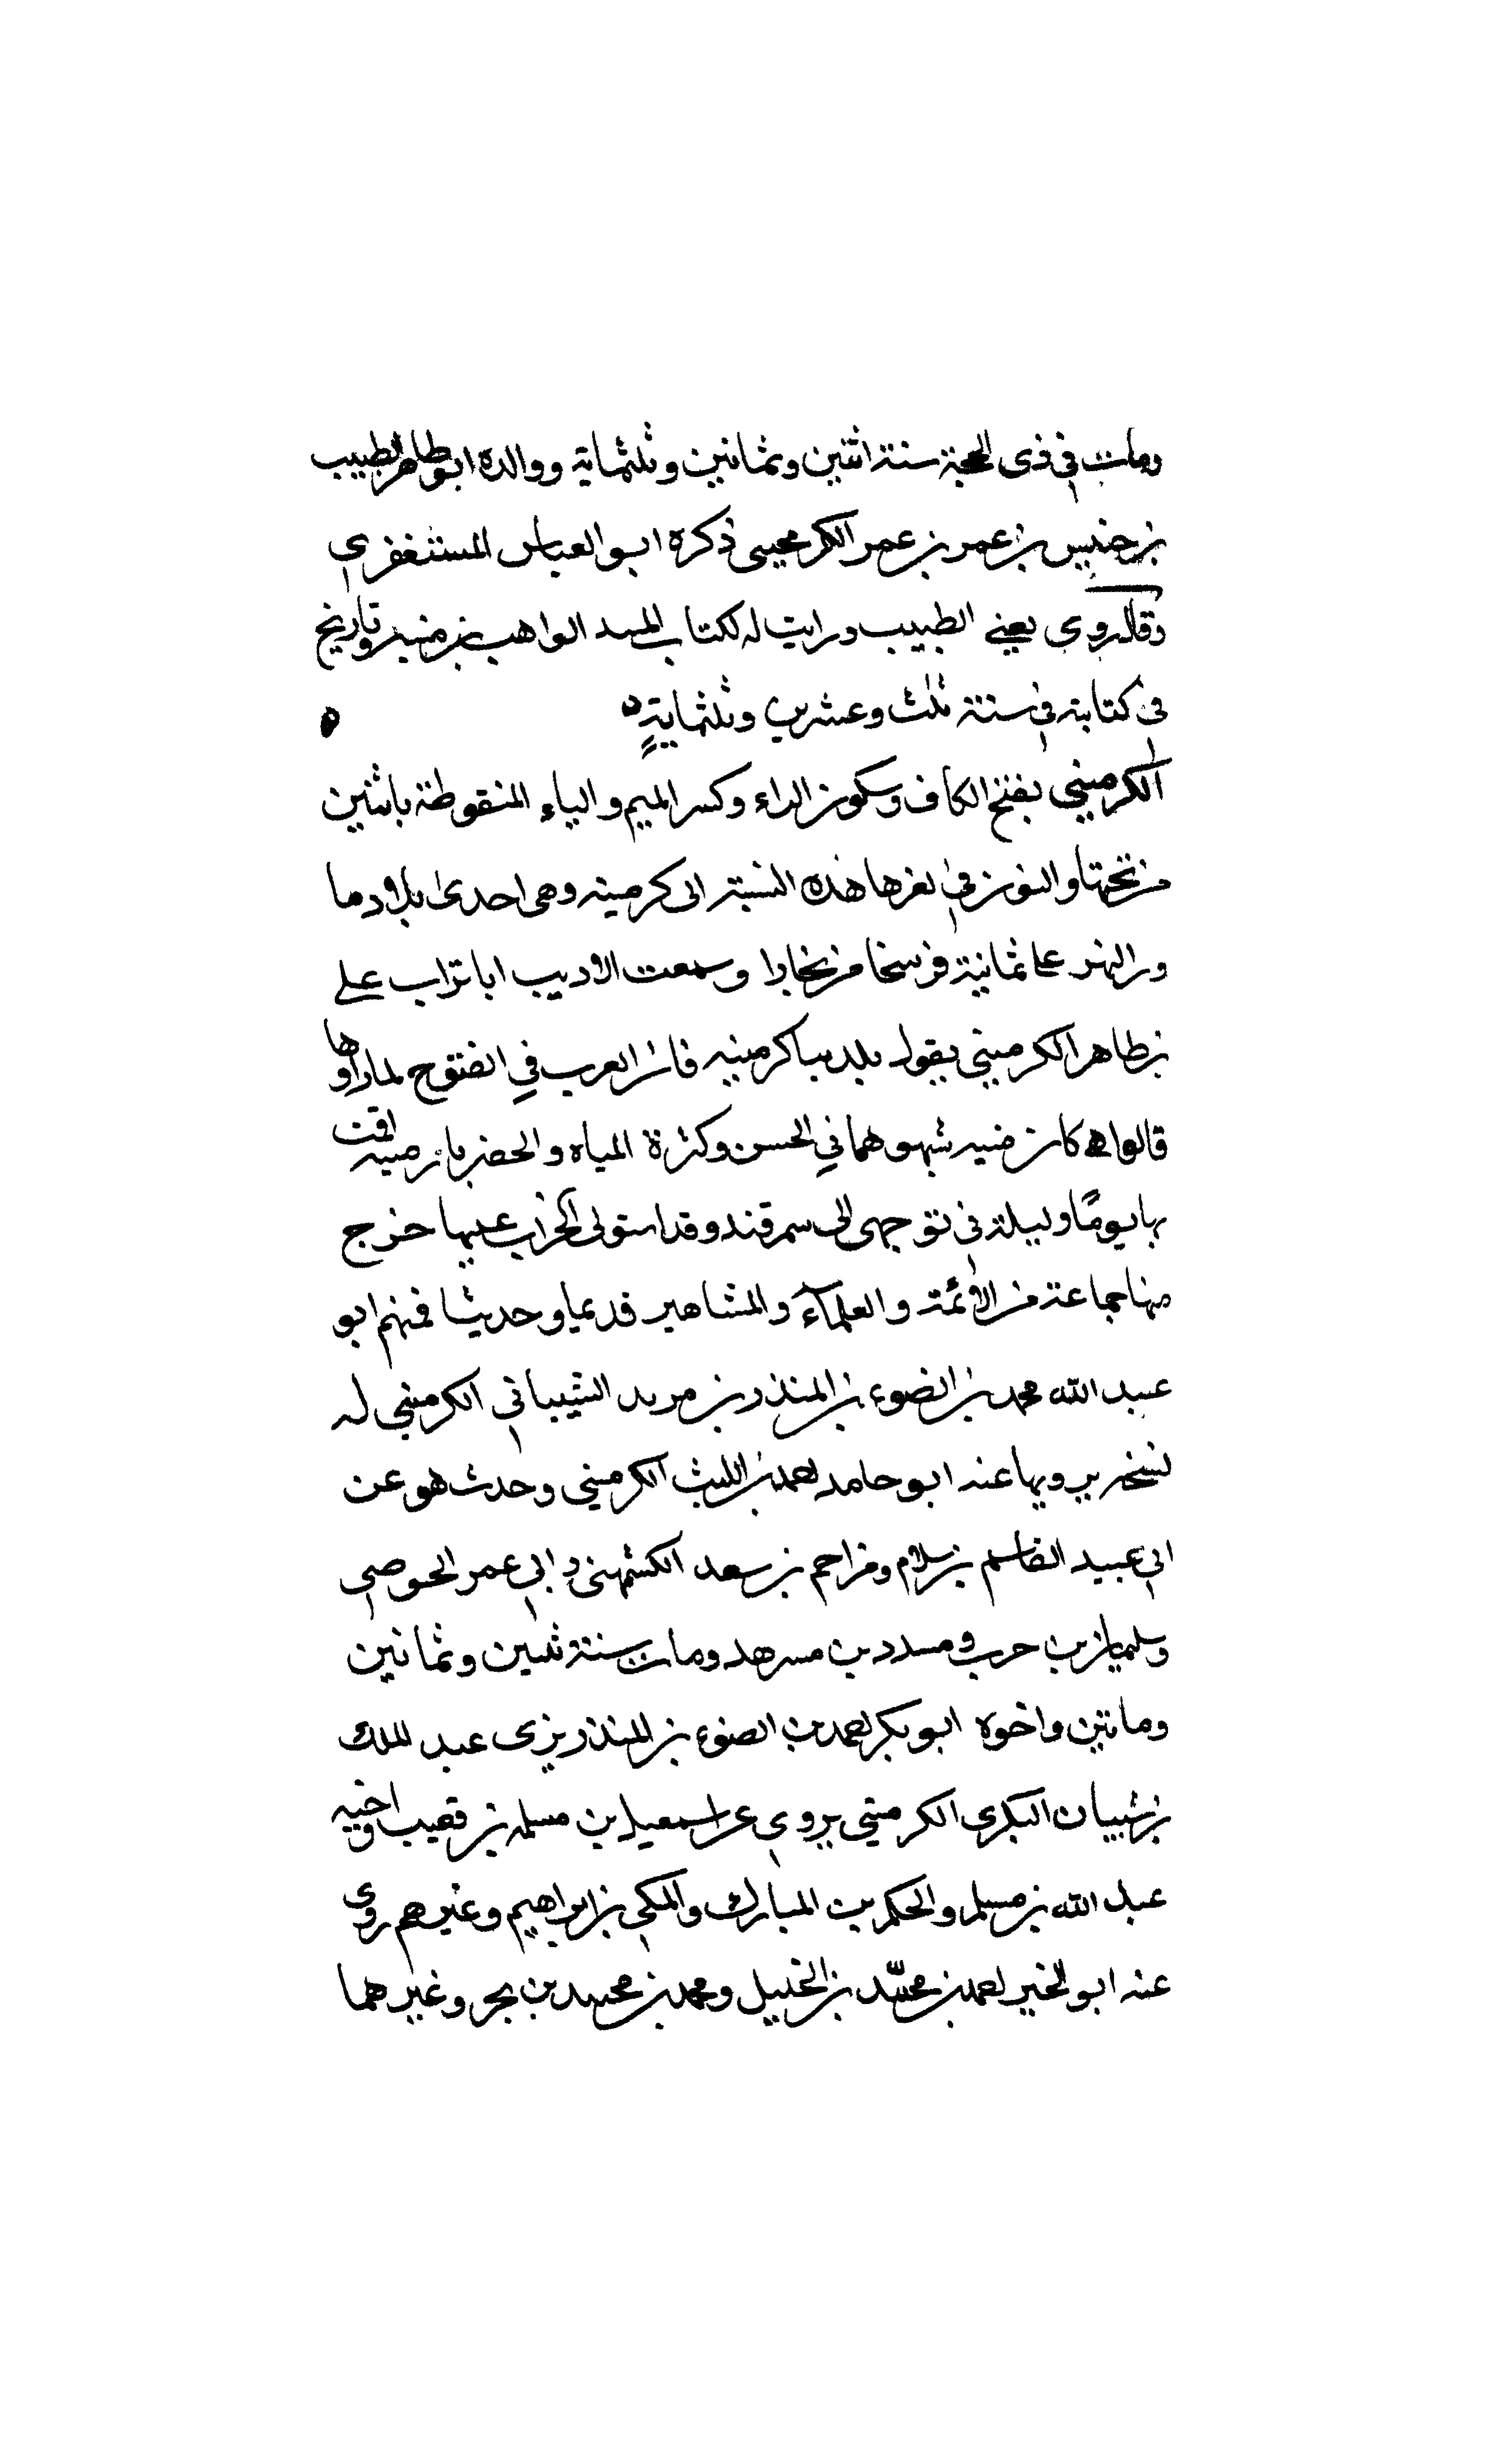 ومات في ذى الحجة سنة اثنتين وثمانين وثلثماية ووالده ابو طاهر الطيب
بن خنيس بن عمر بن عمر الكرمجيى ذكره ابو العباس المستغفرى
وقال روى يعنى الطيب ورايت له لكتاب المسند الواهب بن منبه وتاريخ
فى كتابته فى سنة ثلث وعشرين وثلثماية
الكرمينى بفتح الكاف وسكون الراء وكسر الميم والياء المنقوطة باثنتين
من تحتها والنون فى اخرها هذه النسبة الى كرمينه وهى احدى بلاد ما
ورا النهر على ثمانية فرسخا من بخارا وسمعت الاديب ابا تراب على
بن طاهر الكرمينى يقول بلدينا كرمنيه فان العرب في الفتوح لما راوها
قالوا هى كارمنيه شبهوهما في الحسن وكثرة المياه والخضر بارمينيه اقمت
بها يومًا وليلة فى توجهى الى سمرقند وقد استولى الخراب عليها خرج
منها جماعة من الائمة والعلمآء والمشاهير قديما وحديثا فمنهم ابو
عبد الله محمد بن الضوء بن المنذر بن مريد الشيبانى الكرمينى له
نسخه يرويها عنه ابو حامد احمد بن الليث الكرمينى وحدث هو عن
ابى عبيد القاسم بن سلام ومزاحم بن سعد الكشمهنى وابى عمر الحوضى
وسليمان بن حرب ومسدد بن مسرهد ومات سنة ثنتين وثمانين
ومائتين واخوه ابو بكر احمد بن الضوء بن المنذر يزى عبد الملك
بن شيبان البكرى الكرمينى يروى عن اسمعيل بن مسلمه بن قعنب واخيه
عبد الله بن مسلم والحكم بن المبارك والمكى بن ابراهيم وغيرهم روى
عنه ابو الخير احمد بن محمّد بن الخليل ومحمد بن محمد بن بجر وغيرهما